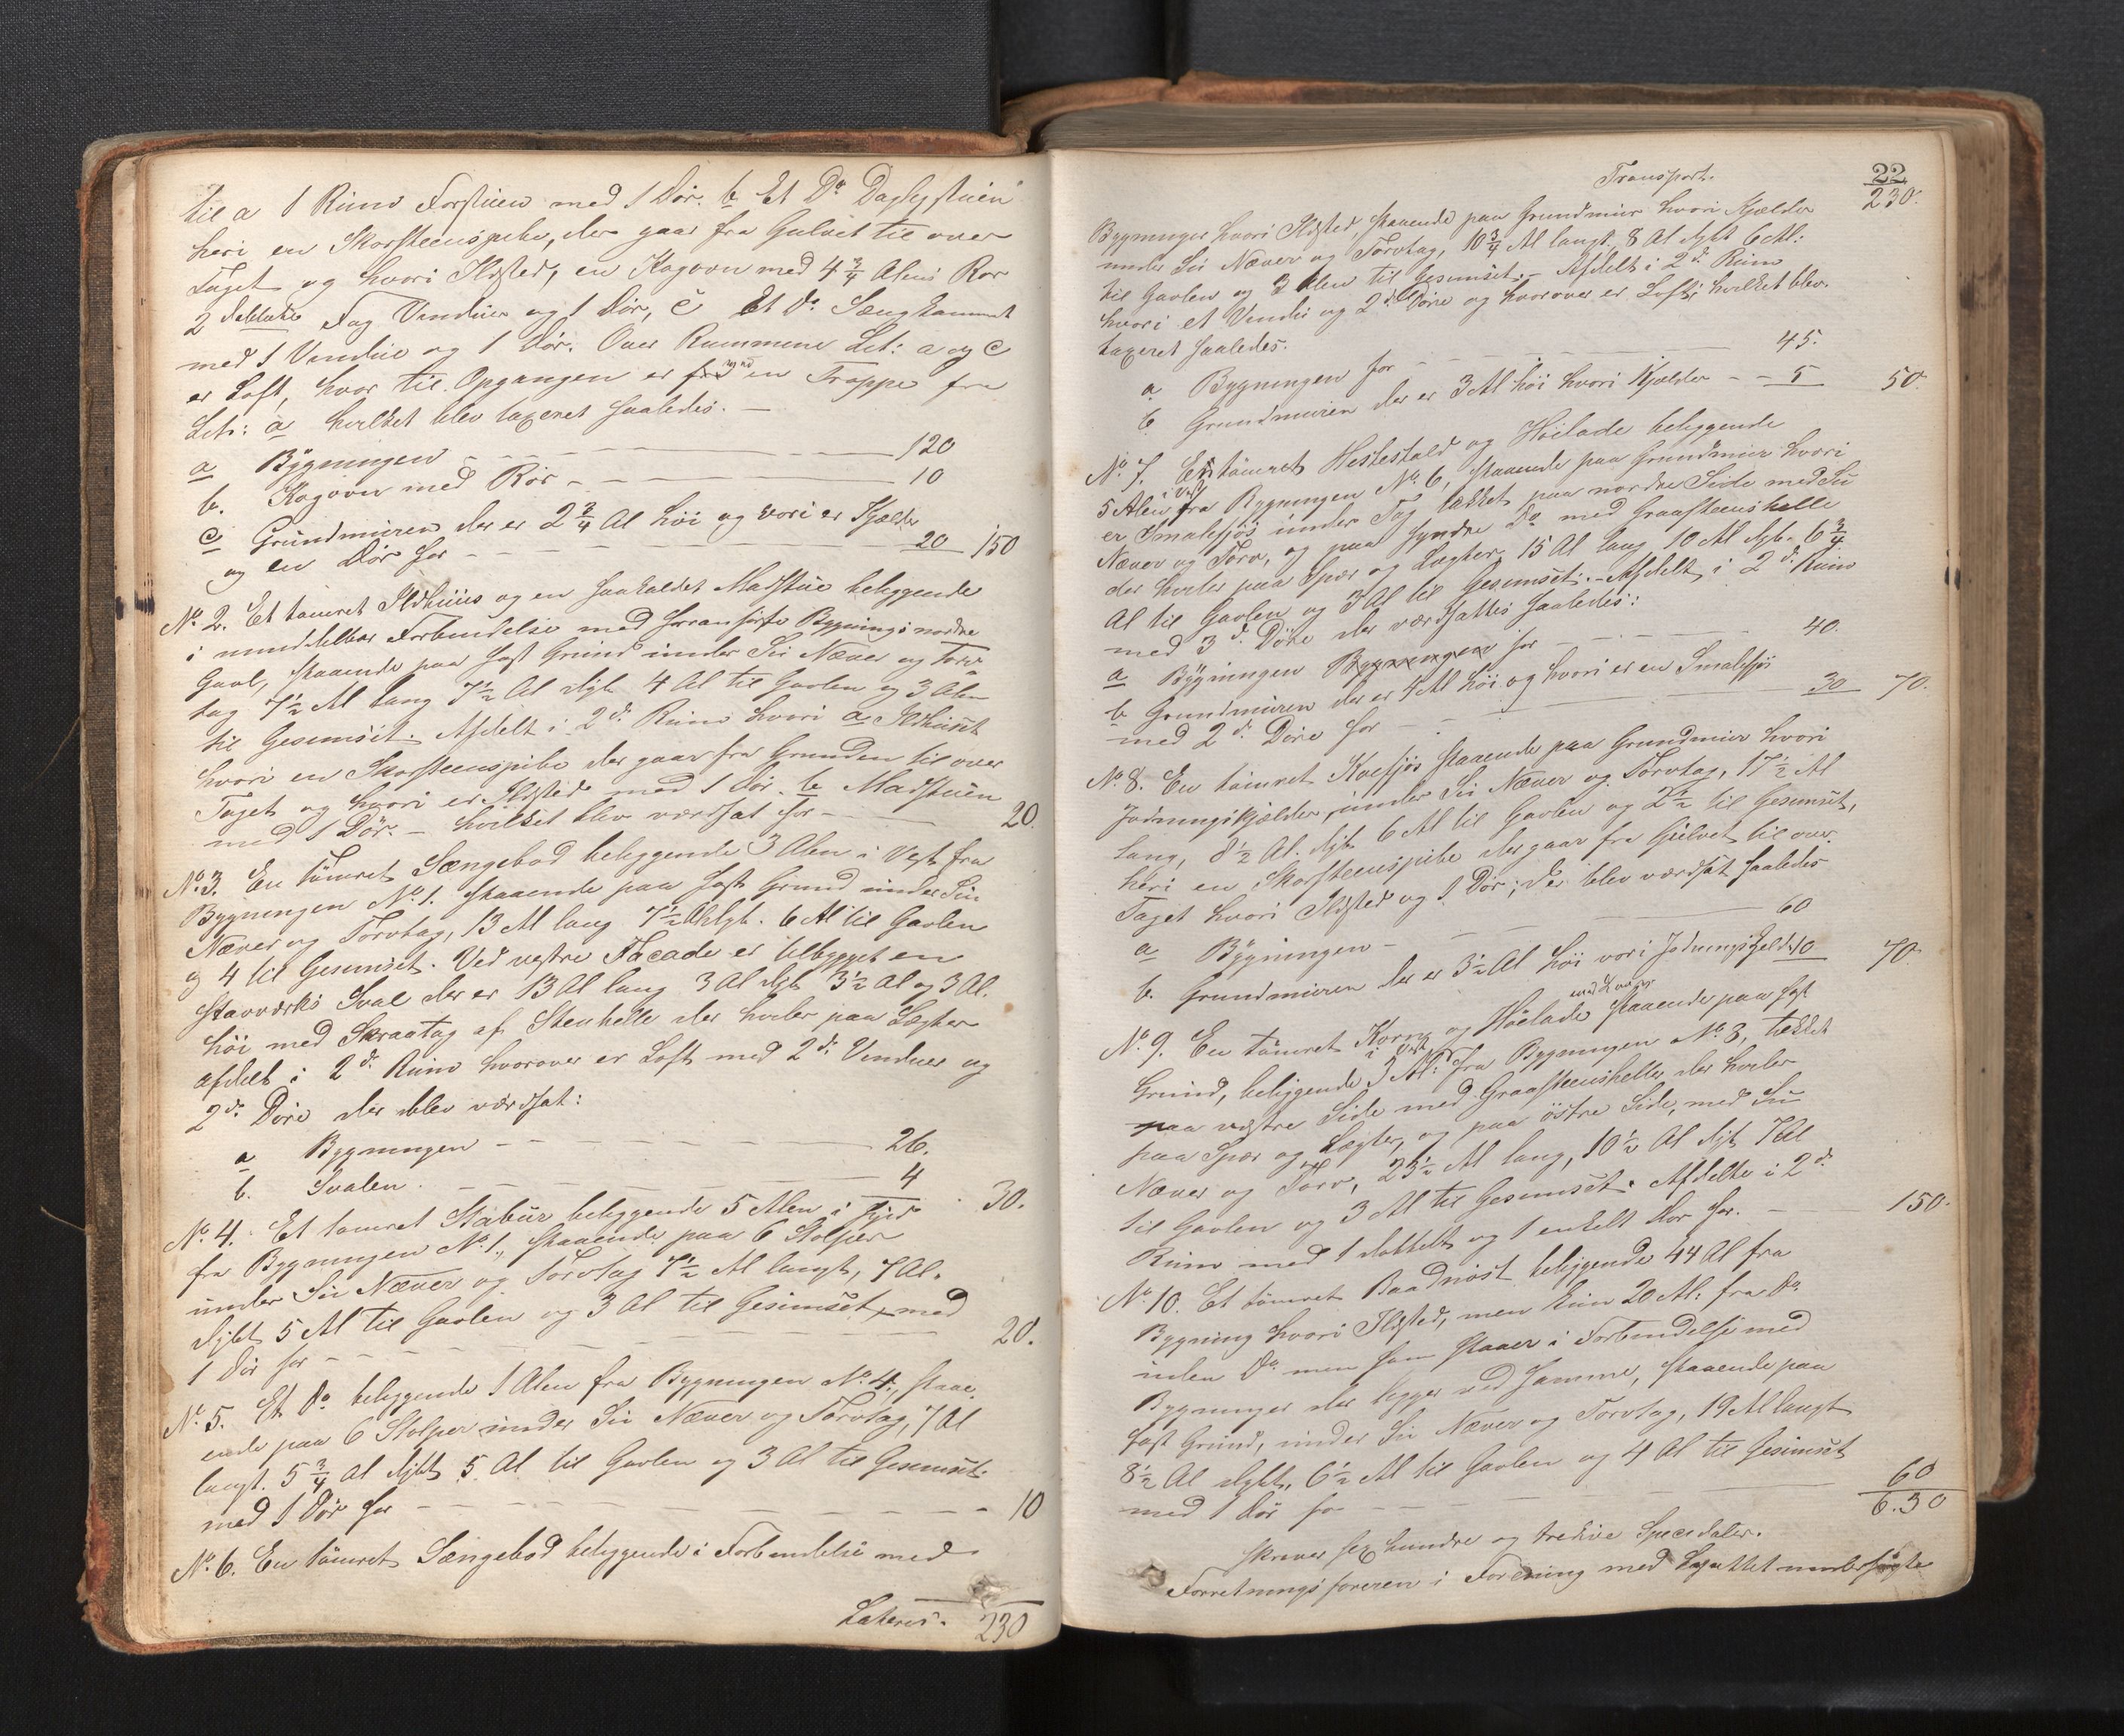 til a 1 Rum Forstuen med 1 Dör. b Et Do Daglystuen
heri en Skorsteenspibe, der gaar fra Gulvet til over
Taget og hvori Ildsted, en Kogovn med 4 3/4 Alens Rör
2 dobbelte Fag Vinduer og 1 Dör, c Et do Sængkammer
med 1 Vindue og 1 Dör. Over Rummene Lit: a og c
er Loft, hvor til Opgangen er ved en Trappe fra
Lit: a hvilket blev taxeret saaledes. —
a Bygningen — 120
b. Kogovn med Rör — 10
c Grundmuren der er 2 3/4 Al höi og vori er Kjelder
og en Dör for — 20 150
No 2. Et tömret Ildhuus og en saakaldet Madstue beliggende
i umiddelbar Forbindelse med foranförte Bygnings nordre
Gavl, staaende paa fast Grund under Su Næver og Torv
tag 7 1/2 Al lang 7 1/2 Al dyb 4 Al til Gavlen og 3 Alen
til Gesemset. Afdelt i 2de Rum hvori a Ildhuset
hvori en Skorsteenspibe der gaar fra Grunden til over
Taget og hvori er Ildsted med 1 Dör. b Madstuen
med 1 Dör. — hvilket blev værdsat for — 20.
No 3. En tömret Sængebod beliggende 3 Alen i Vest fra
Bygningen No 1. staaende paa fast Grund under Su
Næver og Torvtag, 13 Al lang 7 1/2 Al dyb. 6 Al til Gavlen
og 4 til Gesemset. Ved vestre Facade er tilbygget en
Stavværks Sval der er 13 Al lang 3 Al dyb 3 1/2 Al og 3 Al.
höi med Skraatag af Steenhelle der hviler paa Lægter
afdelt i 2de Rum hvorover er Loft med 2de Vinduer og
2de Döre der blev værdsat:
a Bygningen — 26.
b. Svalen. — 4 30.
No 4. Et tömret Stabur beliggende 5 Alen i Syd
fra Bygningen No 1., staaende paa 6 Stolper
under Su Næver og Torvtag 7 1/2 Al langt, 7 Al.
dybt 5 Al til Gavlen og 3 Al til Gesimset, med
1 Dör for — 20.
No 5. Et do beliggende 1 Alen fra Bygningen No 4., staa
ende paa 6 Stolper under Su Næver og Torvtag, 7 Al
langt. 5 3/4 Al dybt 5 Al til Gavlen og 3 Al til Gesemset.
med 1 Dör for — 10
No. 6. En tömret Sængebod beliggende i Forbindelse med
Lateris. 230
22
Transport. 230.
Bygninger hvori Ildsted, staaende paa Grundmuur hvori Kjælder
under Su Næver og Torvtag, 10 3/4 Al langt, 8 Al dybt 6 Al:
til Gavlen og 3 Alen til Gesemset. — Afdelt i 2de Rum
hvori et Vindu og 2de Döre og hvorover er Loft; hvilket blev.
taxeret saaledes.
a Bygningen for — 45.
b Grundmuren der er 3 Al höi hvori Kjelder — 5 50.
No. 7. En tömret Hestestald og Höilade beliggende
5 Alen i Vest fra Bygningen No. 6, staaende paa Grundmuur hvori
er Smalefjös under Tag tækket paa nordre Side med Su
Næver og Torv, og paa syndre Do med Graasteenshelle
der hviler paa Spær og Lægter, 15 Al lang 10 Al dyb. 6 3/4
Al til Gavlen og 3 Al til Gesemset. — Afdelt i 2de Rum
med 3de Döre der værdsattes saaledes:
a Bygningen Bygningen for — 40.
b Grundmuren der er 4 Al höi og hvori er en Smalefjös
med 2de Döre for — 30 70.
No. 8. En tömret Koefjös staaende paa Grundmuur hvori
Jodningskjælder, under Su Næver og Torvtag, 17 1/2 Al
lang, 8 1/2 Al. dyb 6 Al til Gavlen og 2 1/2 til Gesemset,
heri en Skorsteenspibe der gaar fra Gulvet til over.
Taget hvori Ildsted og 1 Dör; der blev værdsat saaledes
a Bygningen — 60
b. Grundmuren der er 3 1/2 Al höi vori Jodningskjelder 10 70.
No. 9. En tömret Korn og Höelade staaende paa fast
Grund, beliggende 3 Al: i Vest fra Bygningen No. 3, tækket
paa vestre Side med Graasteenshelle der hviler
paa Spær og Lægter, og paa östre Side, med Su
Næver og Törv, 23 1/2 Al lang, 10 1/2 Al dyb 7 Al
til Gavlen og 3 Al til Gesemset. Afdelte i 2de
Rum med 1 dobbelt og 1 enkelt Dör for. — 150.
No. 10. Et tömret Baadnöst beliggende 44 Al fra
Bygning hvori Ildsted, men kun 20 Al: fra do
uden do men som staaer i Forbindelse med
Bygninger der ligger ved samme, staaende paa
fast Grund, under Su Næver og Torvtag, 19 Al langt
8 1/2 Al dybt, 6 1/2 Al til Gavlen og 4 Al til Gesimset
med 1 Dör for — 60
6.30
skriver sex hundre og tredive Speciedaler.
Forretningsföreren i Forening med Lagrettet undersögte